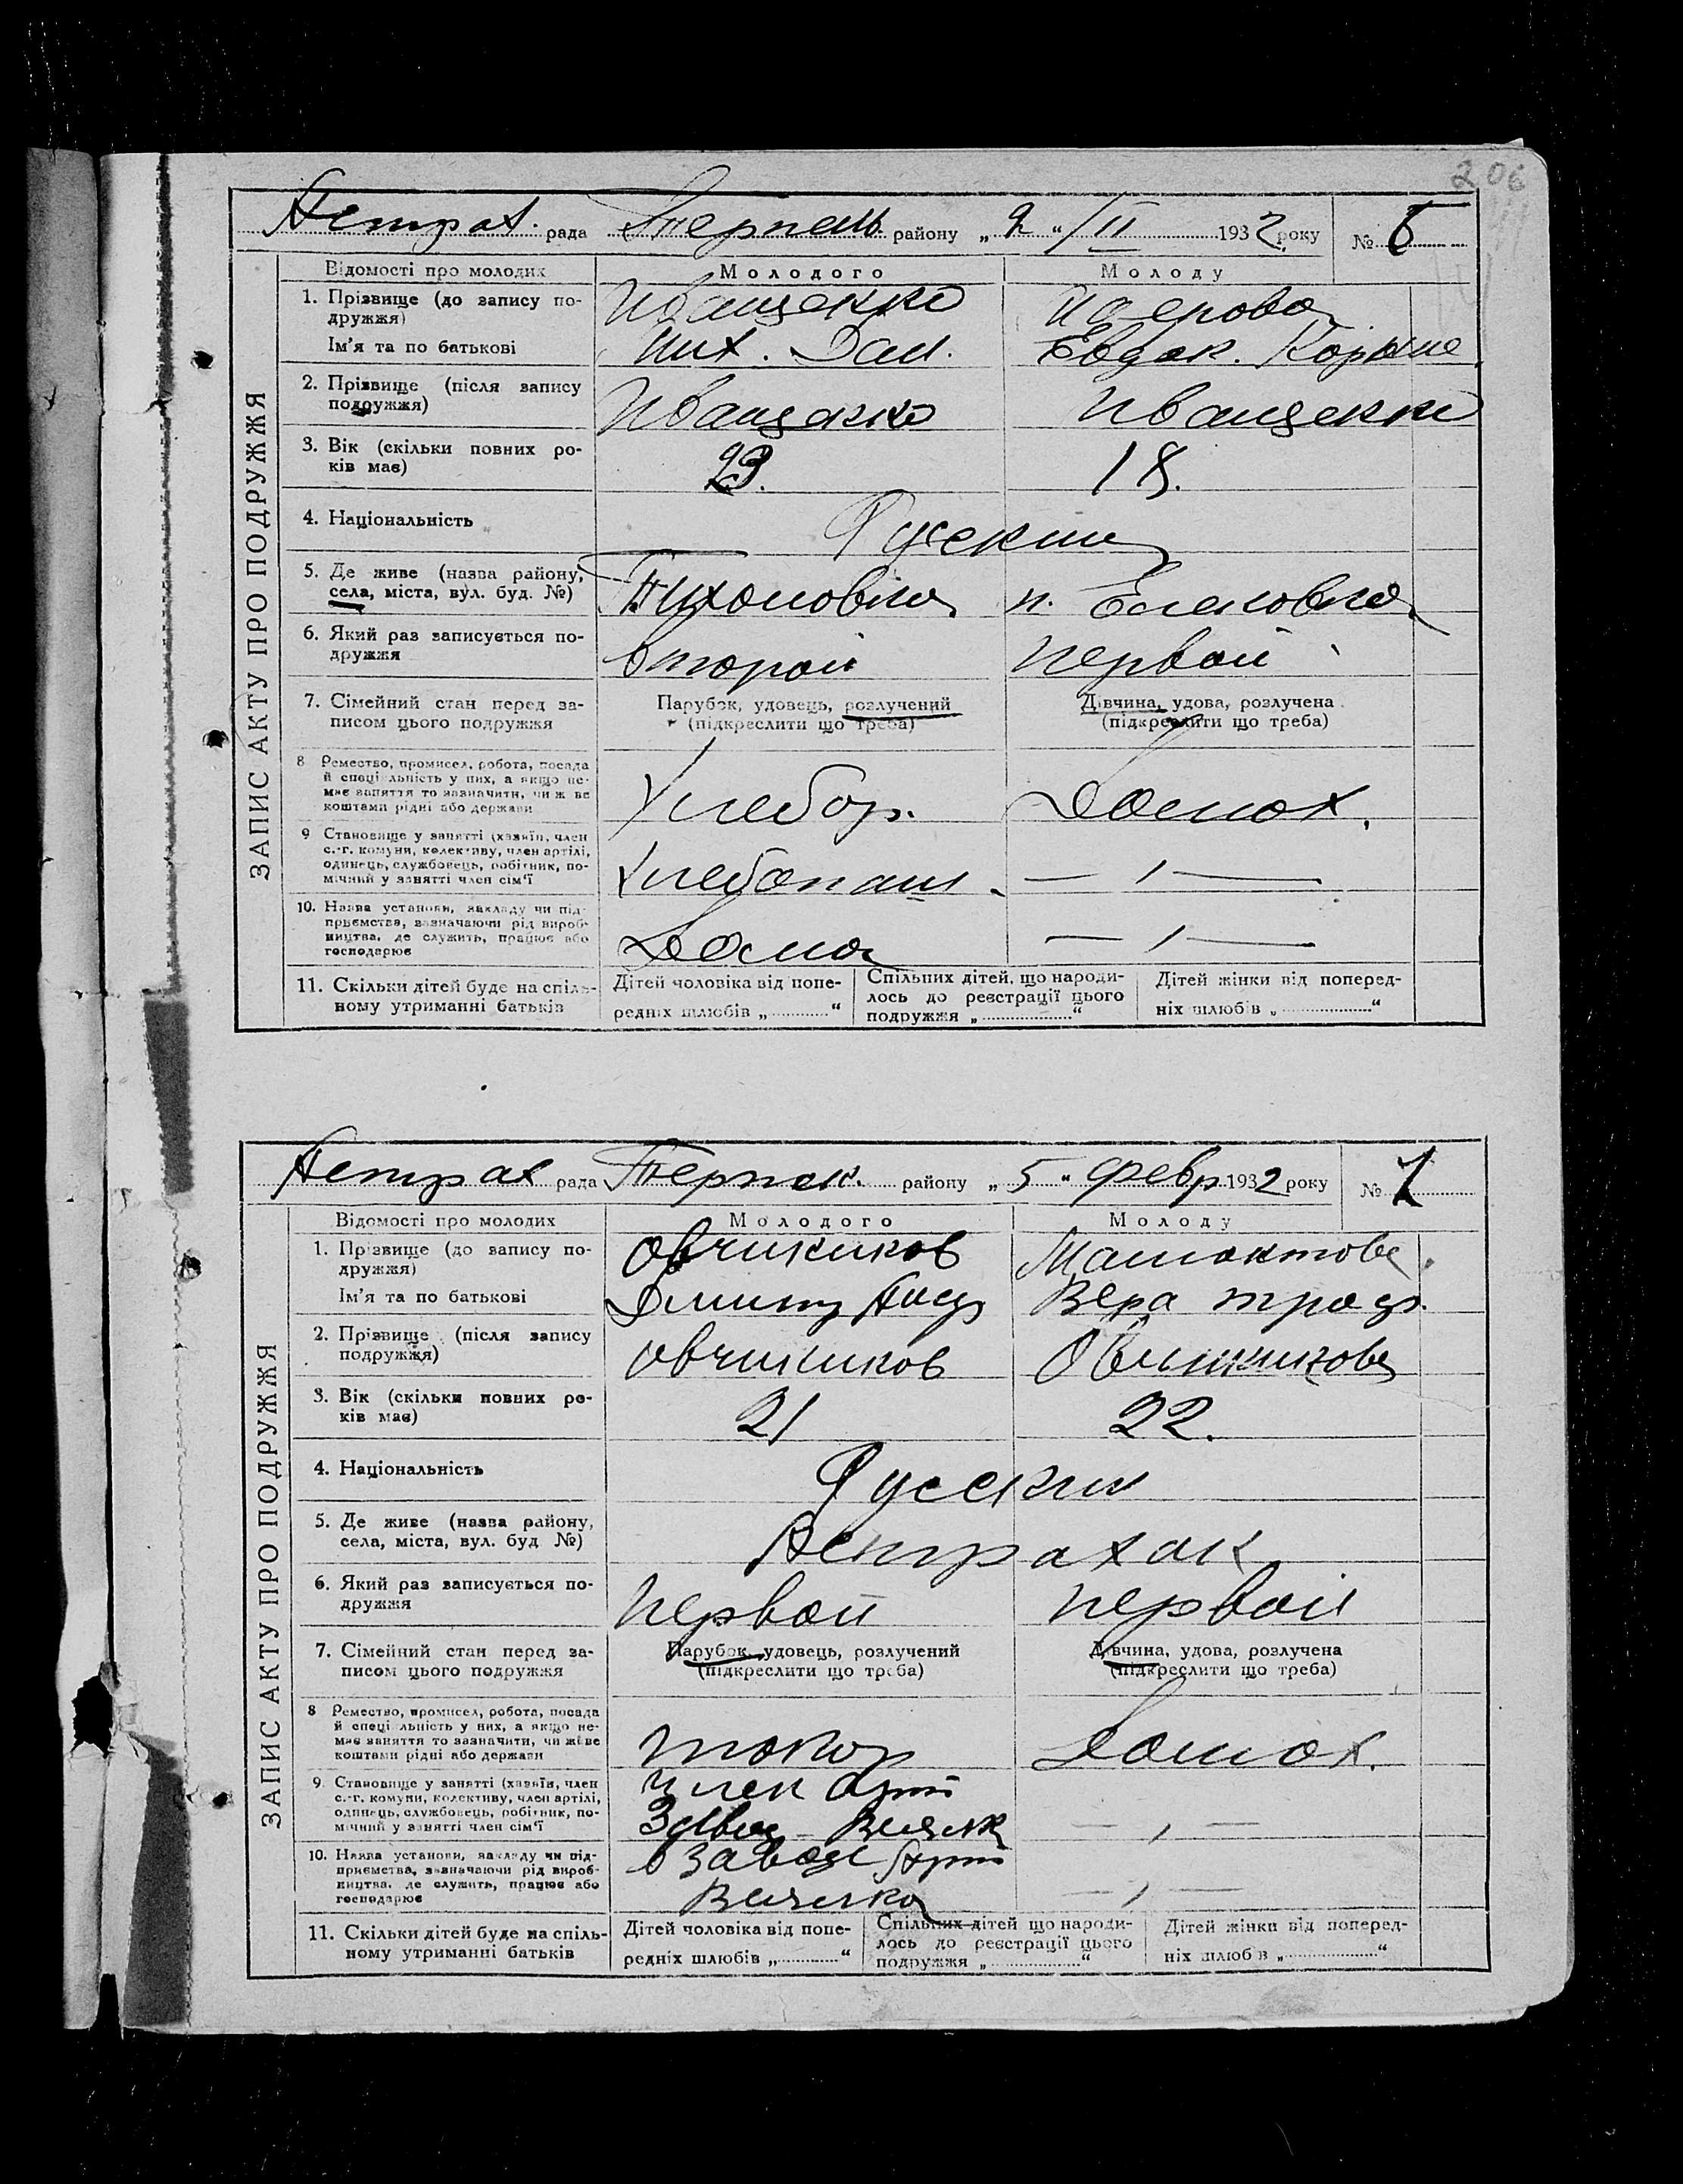 206
Астрах. рада Терпень району „ 2 " /II 1932 року № 6
ЗАПИС АКТУ ПРО ПОДРУЖЖЯ
Відомості про молодих Молодого Молоду
1. Прізвище (до запису по-
дружжя) Иващенко
Ім'я та по батькові Мих. Дан. Евдок.
2. Прізвище (після запису
подружжя) Иващенко Иващенко
3. Вік (скільки повних ро-
ків має) 23. 18.
4. Національність Руские
5. Де живе (назва району,
села, міста, вул. буд. №) Тихоновка
6. Який раз записується по-
дружжя второй первой
7. Сімейний стан перед за-
писом цього подружжя
Парубок, удовець, розлучений
(підкреслити що треба)
Дівчина, удова, розлучена
(підкреслити що треба)
8 Ремество, промисел, робота, посада
й спеціяльність у них, а якщо не-
має заняття то зазначити, чи живе
коштами рідні або держави Хлебор. Домох.
9 Становище у занятті (хазяїн, член
с.-г. комуни, колективу, член артілі,
одинець, службовець, робітник, по-
мічний у занятті член сім'ї Хлебопаш. — 〃 —
10. Назва установи, закладу чи під-
приємства, зазначаючи рід вироб-
ництва, де служить, працює або
господарює Дома — 〃 —
11. Скільки дітей буде на спіль-
ному утриманні батьків
Дітей чоловіка від попе-
редніх шлюбів „ "
Спільних дітей, що народи-
лось до реєстрації цього
подружжя „ "
Дітей жінки від поперед-
ніх шлюбів „ "
Астрах рада Терпен. району „ 5 " февр 1932 року № 7
ЗАПИС АКТУ ПРО ПОДРУЖЖЯ
Відомості про молодих Молодого Молоду
1. Прізвище (до запису по-
дружжя) Овчинников
Ім'я та по батькові Вера Троф.
2. Прізвище (після запису
подружжя) Овчинников Овчинникова
3. Вік (скільки повних ро-
ків має) 21 22.
4. Національність Руские
5. Де живе (назва району,
села, міста, вул. буд №) Астрахан
6. Який раз записується по-
дружжя первой первой
7. Сімейний стан перед за-
писом цього подружжя
Парубок, удовець, розлучений
(підкреслити що треба)
Дівчина, удова, розлучена
(підкреслити що треба)
8 Ремество, промисел, робота, посада
й спеціяльність у них, а якщо не-
має заняття то зазначити, чи живе
коштами рідні або держави токор Домох.
9. Становище у занятті (хазяїн, член
с.-г. комуни, колективу, член артілі,
одинець, службовець, робітник, по-
мічний у занятті член сім'ї член Арт — 〃 —
10. Назва установи, закладу чи під-
приємства, зазначаючи рід вироб-
ництва, де служить, працює або
господарює в заводе Арт — 〃 —
11. Скільки дітей буде на спіль-
ному утриманні батьків
Дітей чоловіка від попе-
редніх шлюбів „ "
Спільних дітей що народи-
лось до реєстрації цього
подружжя „ "
Дітей жінки від поперед-
ніх шлюбів „ "